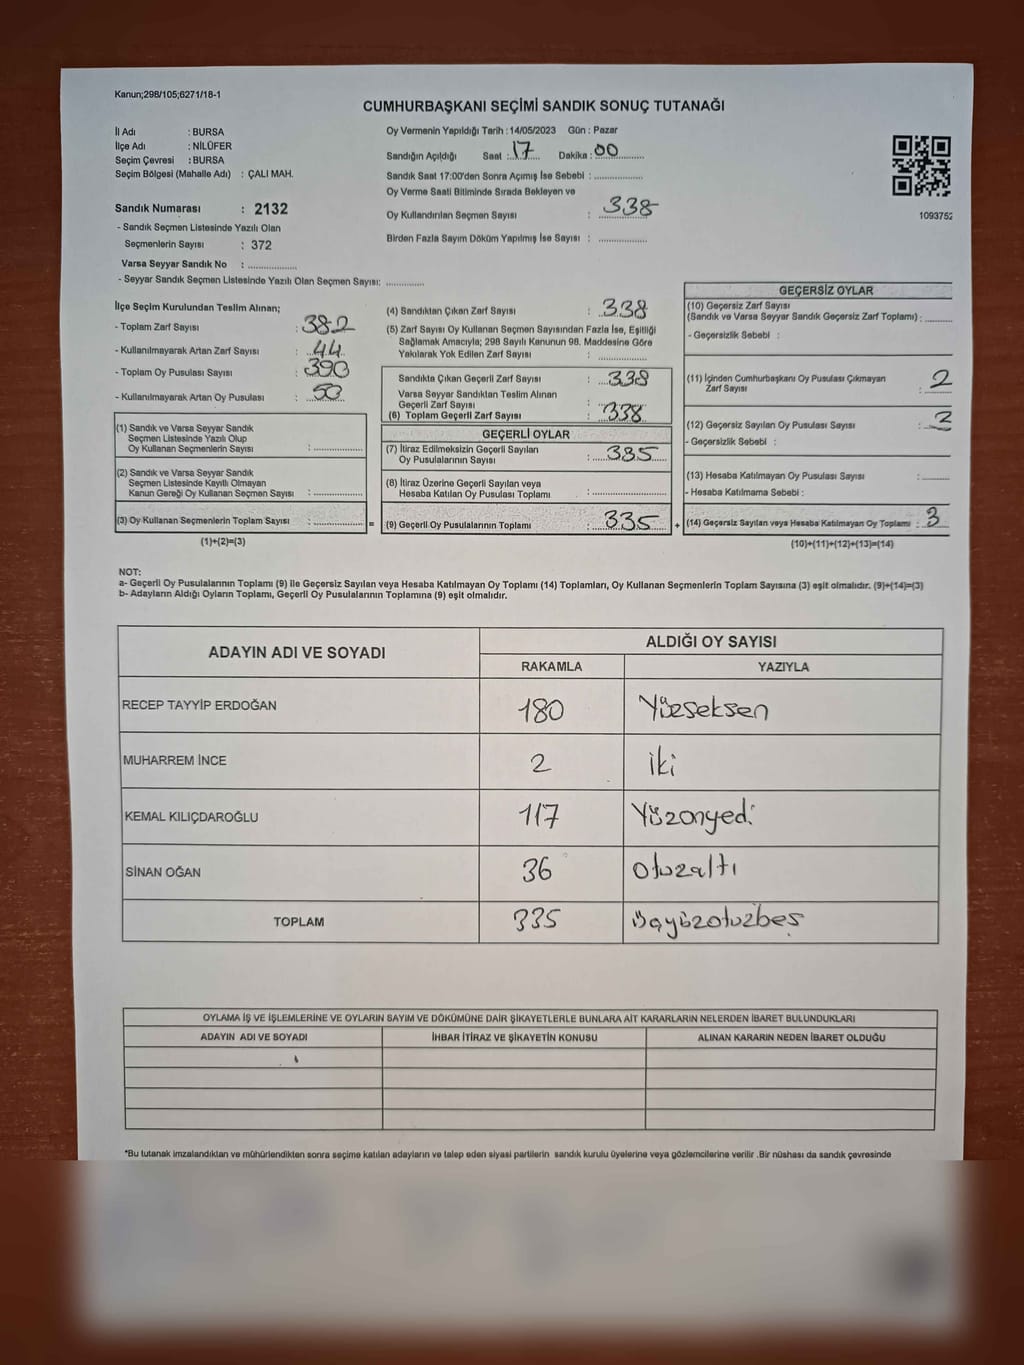 Kanun;298/105;6271/18-1
CUMHURBAŞKANI SEÇİMİ SANDIK SONUÇ TUTANAĞI
İl Adı : BURSA
İlçe Adı : NİLÜFER
Seçim Çevresi : BURSA
Seçim Bölgesi (Mahalle Adı) : ÇALI MAH.
Sandık Numarası : 2132
- Sandık Seçmen Listesinde Yazılı Olan
Seçmenlerin Sayısı : 372
Varsa Seyyar Sandık No : ................
- Seyyar Sandık Seçmen Listesinde Yazılı Olan Seçmen Sayısı: ............
Oy Vermenin Yapıldığı Tarih : 14/05/2023 Gün : Pazar
Sandığın Açıldığı Saat : 17 Dakika : 00
Sandık Saat 17:00'den Sonra Açımış İse Sebebi : ................
Oy Verme Saati Bitiminde Sırada Bekleyen ve
Oy Kullandırılan Seçmen Sayısı : 338
Birden Fazla Sayım Döküm Yapılmış İse Sayısı : ................
1093752
İlçe Seçim Kurulundan Teslim Alınan;
- Toplam Zarf Sayısı : 382
- Kullanılmayarak Artan Zarf Sayısı : 44
- Toplam Oy Pusulası Sayısı : 390
- Kullanılmayarak Artan Oy Pusulası : 50
(1) Sandık ve Varsa Seyyar Sandık
Seçmen Listesinde Yazılı Olup
Oy Kullanan Seçmenlerin Sayısı : ................
(2) Sandık ve Varsa Seyyar Sandık
Seçmen Listesinde Kayıtlı Olmayan
Kanun Gereği Oy Kullanan Seçmen Sayısı : ................
(3) Oy Kullanan Seçmenlerin Toplam Sayısı : ................ =
(1)+(2)=(3)
(4) Sandıktan Çıkan Zarf Sayısı : 338
(5) Zarf Sayısı Oy Kullanan Seçmen Sayısından Fazla İse, Eşitliği
Sağlamak Amacıyla; 298 Sayılı Kanunun 98. Maddesine Göre
Yakılarak Yok Edilen Zarf Sayısı : ................
Sandıkta Çıkan Geçerli Zarf Sayısı : 338
Varsa Seyyar Sandıktan Teslim Alınan
Geçerli Zarf Sayısı : ................
(6) Toplam Geçerli Zarf Sayısı : 338
GEÇERLİ OYLAR
(7) İtiraz Edilmeksizin Geçerli Sayılan
Oy Pusulalarının Sayısı : 335
(8) İtiraz Üzerine Geçerli Sayılan veya
Hesaba Katılan Oy Pusulası Toplamı : ................
(9) Geçerli Oy Pusulalarının Toplamı : 335 +
GEÇERSİZ OYLAR
(10) Geçersiz Zarf Sayısı
(Sandık ve Varsa Seyyar Sandık Geçersiz Zarf Toplamı) : ........
- Geçersizlik Sebebi :
(11) İçinden Cumhurbaşkanı Oy Pusulası Çıkmayan
Zarf Sayısı : 2
(12) Geçersiz Sayılan Oy Pusulası Sayısı :
- Geçersizlik Sebebi :
(13) Hesaba Katılmayan Oy Pusulası Sayısı : ........
- Hesaba Katılmama Sebebi :
(14) Geçersiz Sayılan veya Hesaba Katılmayan Oy Toplamı : 3
(10)+(11)+(12)+(13)=(14)
NOT:
a- Geçerli Oy Pusulalarının Toplamı (9) ile Geçersiz Sayılan veya Hesaba Katılmayan Oy Toplamı (14) Toplamları, Oy Kullanan Seçmenlerin Toplam Sayısına (3) eşit olmalıdır. (9)+(14)=(3)
b- Adayların Aldığı Oyların Toplamı, Geçerli Oy Pusulalarının Toplamına (9) eşit olmalıdır.
ADAYIN ADI VE SOYADI ALDIĞI OY SAYISI
RAKAMLA YAZIYLA
RECEP TAYYİP ERDOĞAN 180 Yüzseksen
MUHARREM İNCE 2 iki
KEMAL KILIÇDAROĞLU 117 Yüzonyedi
SİNAN OĞAN 36 Otuzaltı
TOPLAM 335 Üçyüzotuzbeş
OYLAMA İŞ VE İŞLEMLERİNE VE OYLARIN SAYIM VE DÖKÜMÜNE DAİR ŞİKAYETLERLE BUNLARA AİT KARARLARIN NELERDEN İBARET BULUNDUKLARI
ADAYIN ADI VE SOYADI İHBAR İTİRAZ VE ŞİKAYETİN KONUSU ALINAN KARARIN NEDEN İBARET OLDUĞU
*Bu tutanak imzalandıktan ve mühürlendikten sonra seçime katılan adayların ve talep eden siyasi partilerin sandık kurulu üyelerine veya gözlemcilerine verilir .Bir nüshası da sandık çevresinde